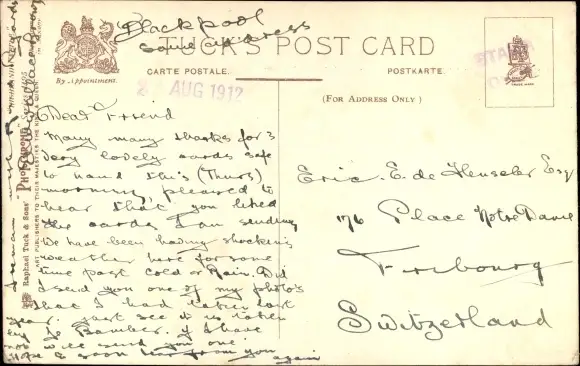 Blackpool
same address
TUCK'S POST CARD
By Appointment.
CARTE POSTALE.
POSTKARTE.
AUG 1912
(FOR ADDRESS ONLY)
TRADE MARK
Dear Friend
Many many thanks for 3
very lovely cards safe
to hand this (Thurs)
morning pleased to
hear that you liked
the cards I am sending
We have been having shocking
weather here for some
time past cold & Rain. Did
I send you one of my photo's
that I had taken last
year. just see it is taken
by J. Bamber. if I have
not will send you one.
Hope to soon hear from you
again
Eric. E. de Heuseler Esq
176 Place Notre Dame
Fribourg
Switzerland
Raphael Tuck & Sons' "PHOTOCHROME"
ART PUBLISHERS TO THEIR MAJESTIES THE KING & QUEEN
I remain with